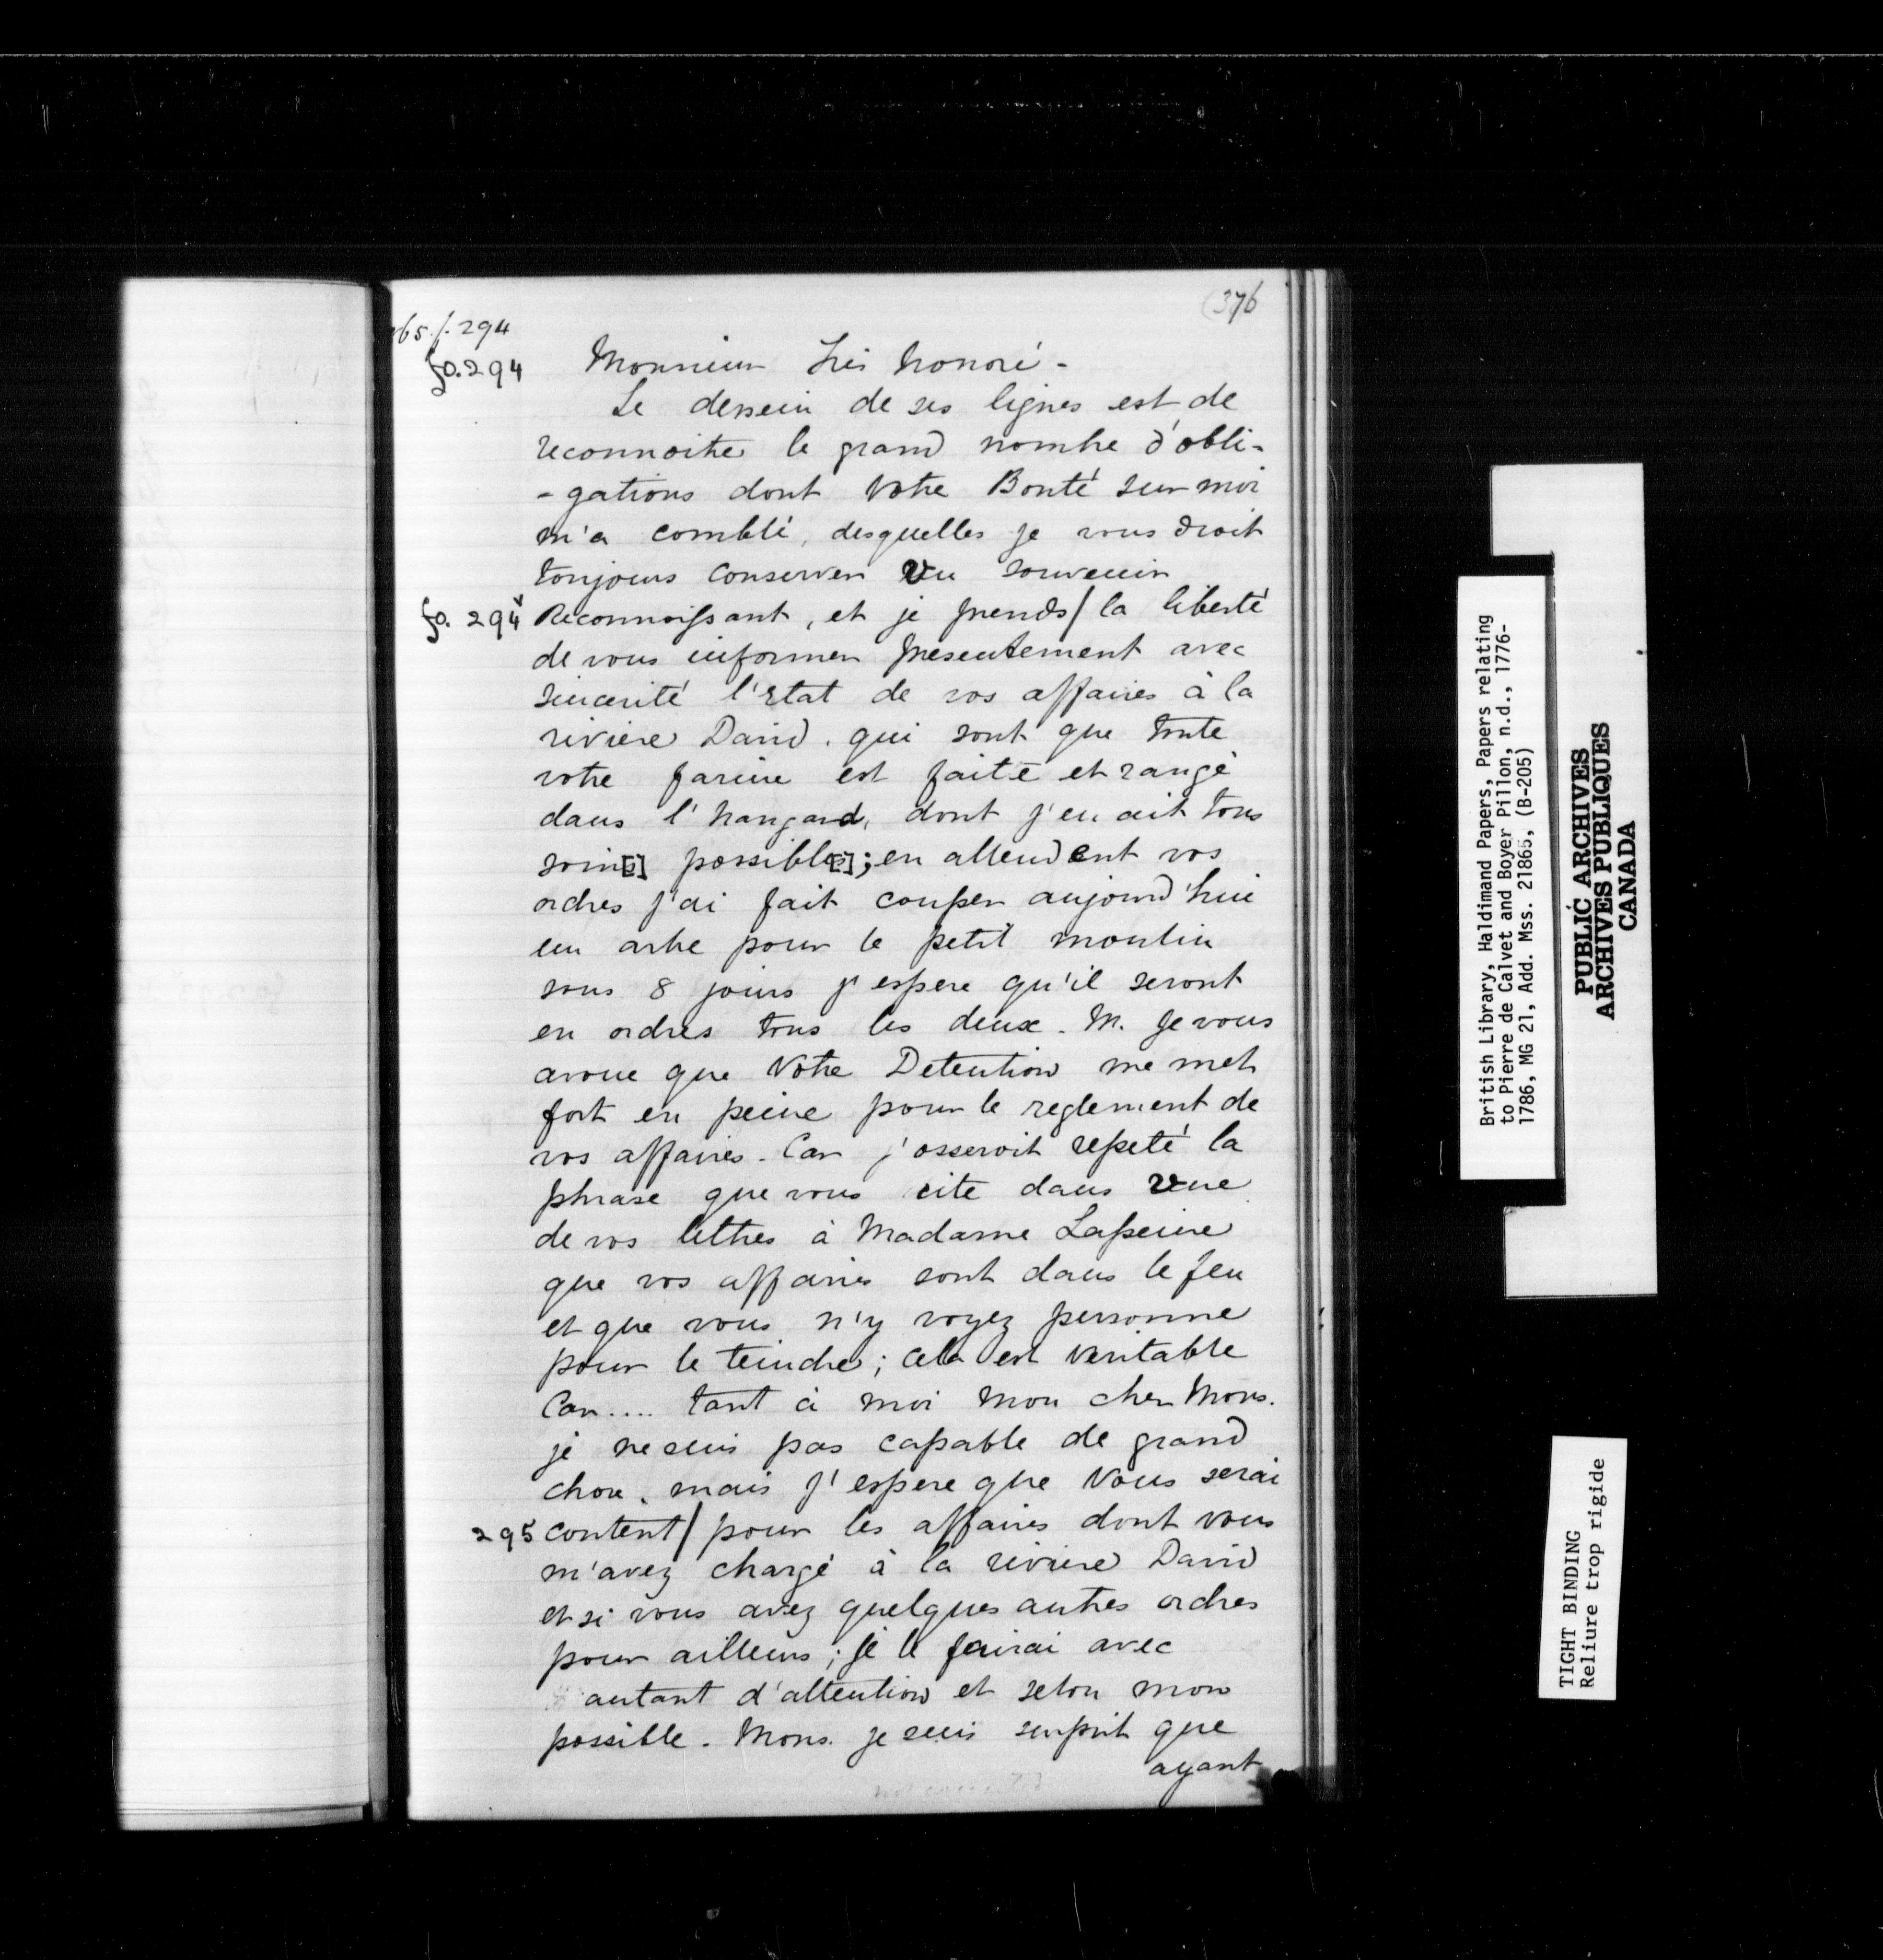 (376
65. f. 294
fo. 294 Monsieur très honoré -
Le dessein de ses lignes est de
reconnoitre le grand nombre d'obli-
- gations dont Votre Bonté sur moi
m'a comblé, desquelles je vous droit
toujours conserver Vn souvenir
fo. 294v Reconnoissant, et je prends/ la liberté
de vous informer presentement avec
sincerité l'Etat de vos affaires à la
riviere David. qui sont que toute
votre farine est faite et rangé
dans l'hangard, dont j'en ait tous
soin[s] possible[s]; en attendent vos
ordres j'ai fait couper aujourd'hui
un arbre pour le petit moulin
sous 8 jours j'espere qu'il seront
en ordres tous les deux. M. je vous
avoue que Votre Detention me met
fort en peine pour le reglement de
vos affaires. Car j'osseroit repeté la
phrase que vous cite dans vne
de vos lettres à Madame Lapeire
que vos affaires sont dans le feu
et que vous n'y voyez personne
pour le teindre; cela est veritable
Car.... tant à moi mon cher Mons.
je ne suis pas capable de grand
chose. mais j'espere que Vous serai
295 content/ pour les affaires dont vous
m'avez chargé à la riviere David
et si vous avez quelques autres ordres
pour ailleurs; je le fairai avec
autant d'attention et selon mon
possible. Mons. je suis surprit que
ayant
British Library, Haldimand Papers, Papers relating
to Pierre de Calvet and Boyer Pillon, n.d., 1776-
1786, MG 21, Add. Mss. 21865, (B-205)
PUBLIC ARCHIVES
ARCHIVES PUBLIQUES
CANADA
TIGHT BINDING
Reliure trop rigide